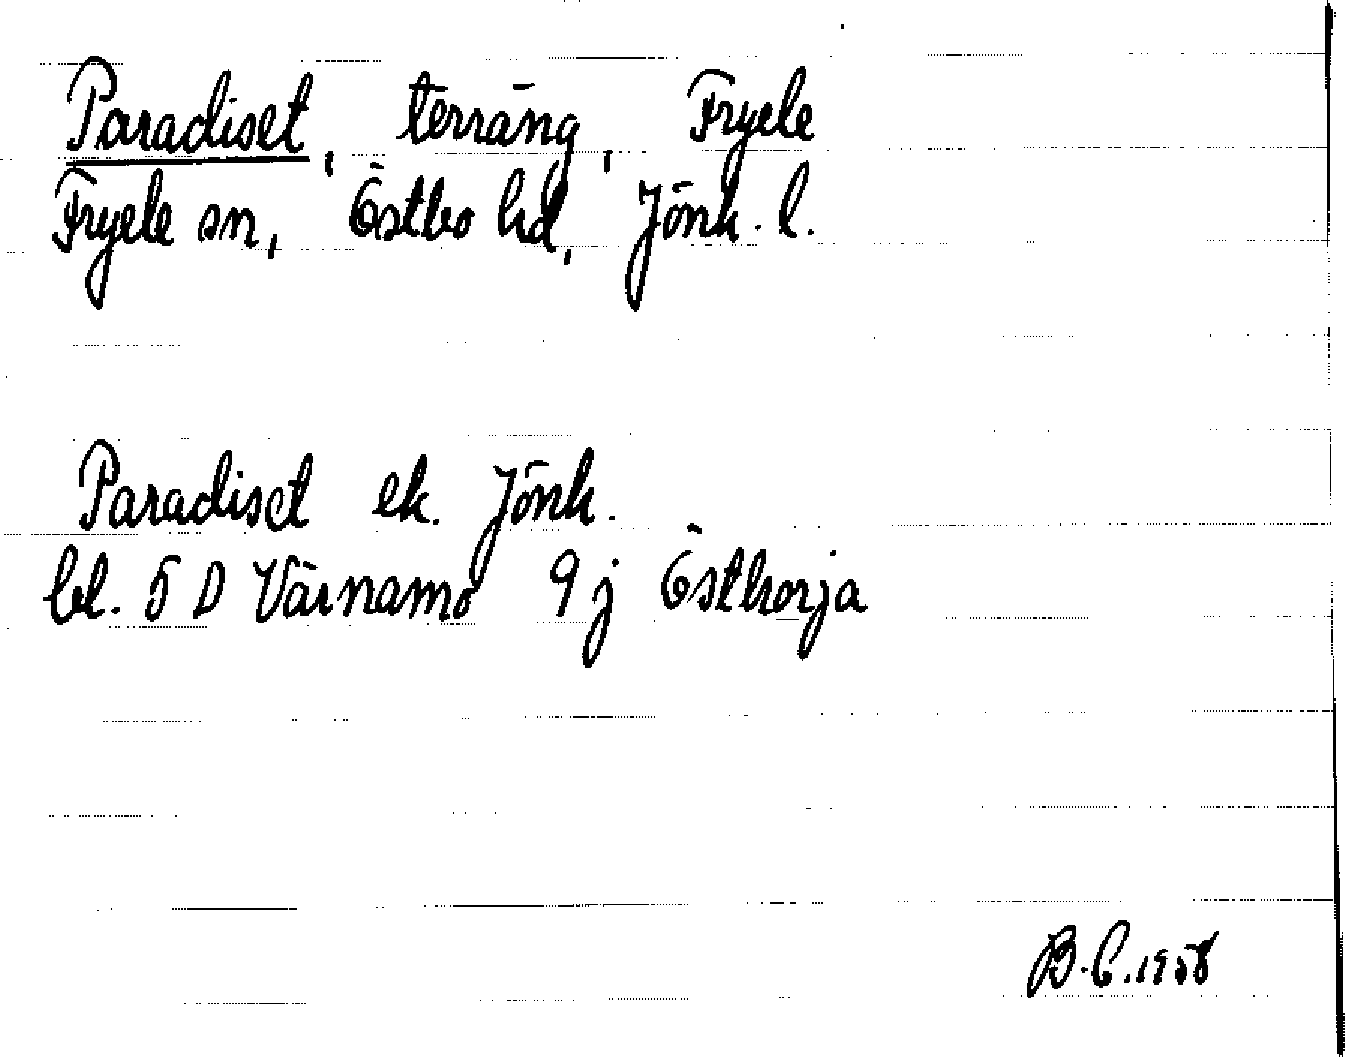 Paradiset, terräng, Fryele
Fryele sn, Östbo hd, Jönk. l.
Paradiset ek. Jönk.
bl. 5 D Värnamo 9 j Östhorja
B.C. 1958